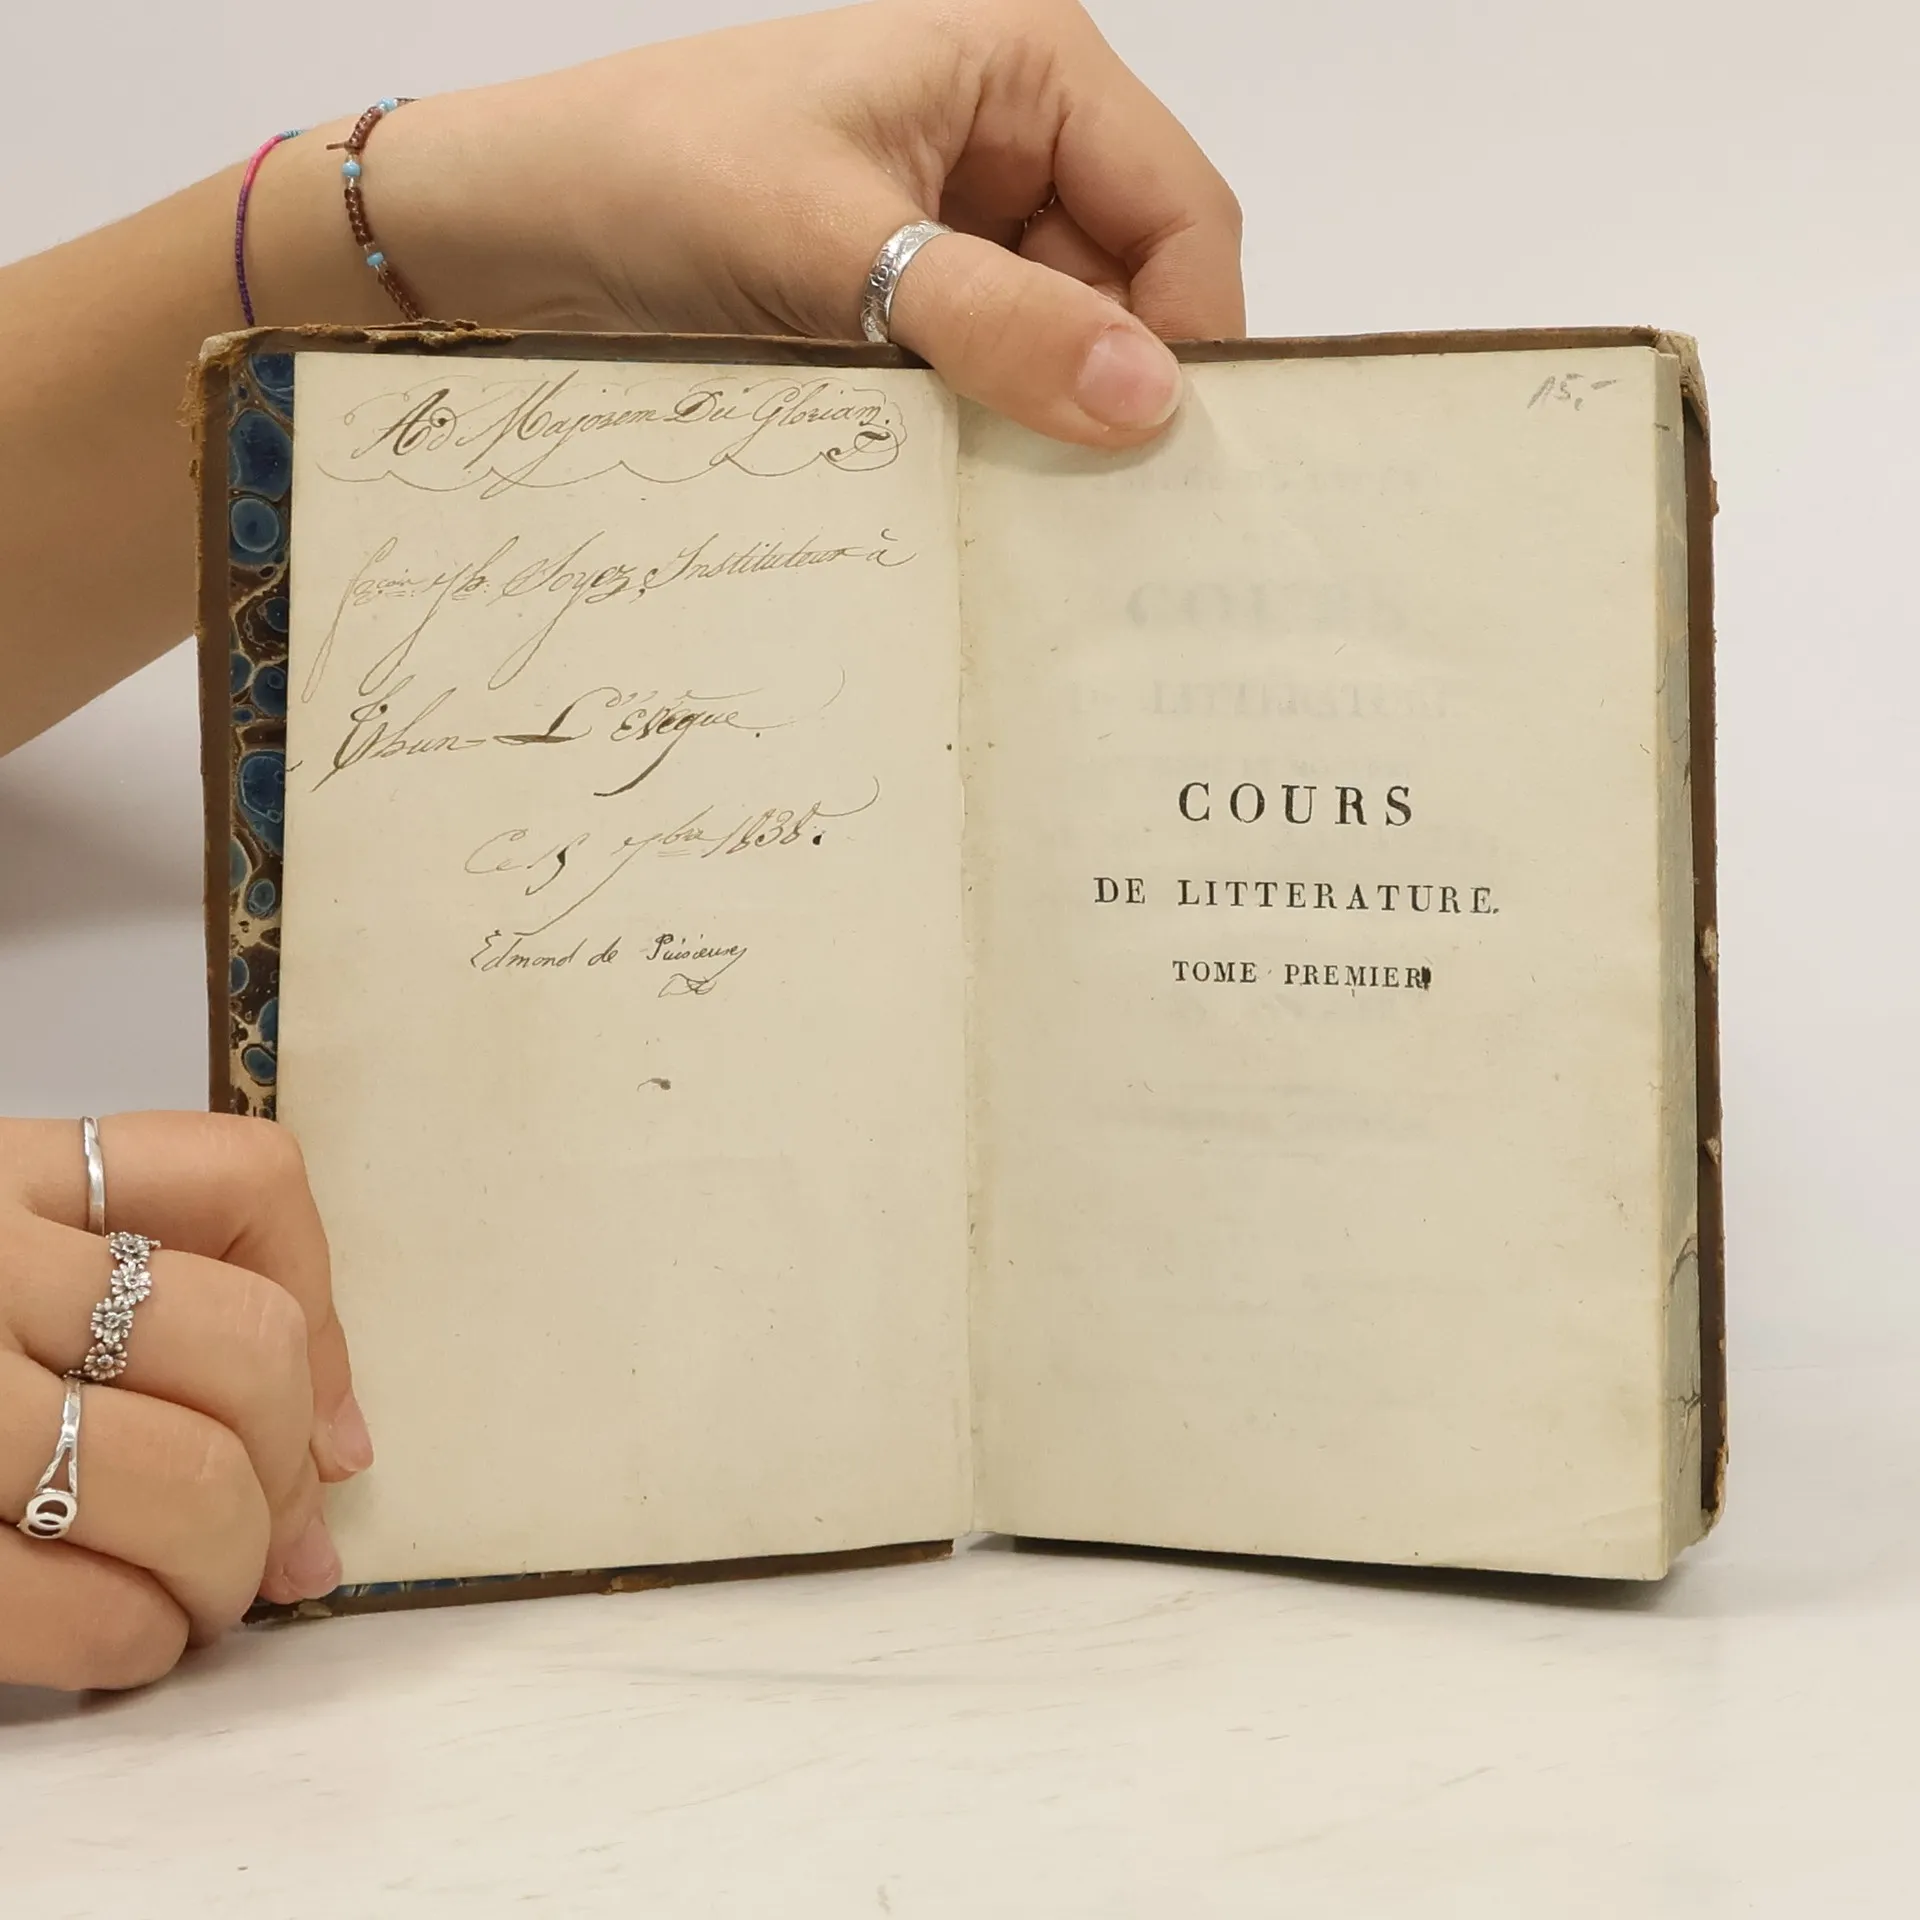 Ad Majorem Dei Gloriam.
fçois Jh. Soyez, Instituteur à
Thun-L'Évêque.
Ce 15 7bre 1838.
Edmond de Puisieux
15,-
COURS
DE LITTERATURE.
TOME PREMIER